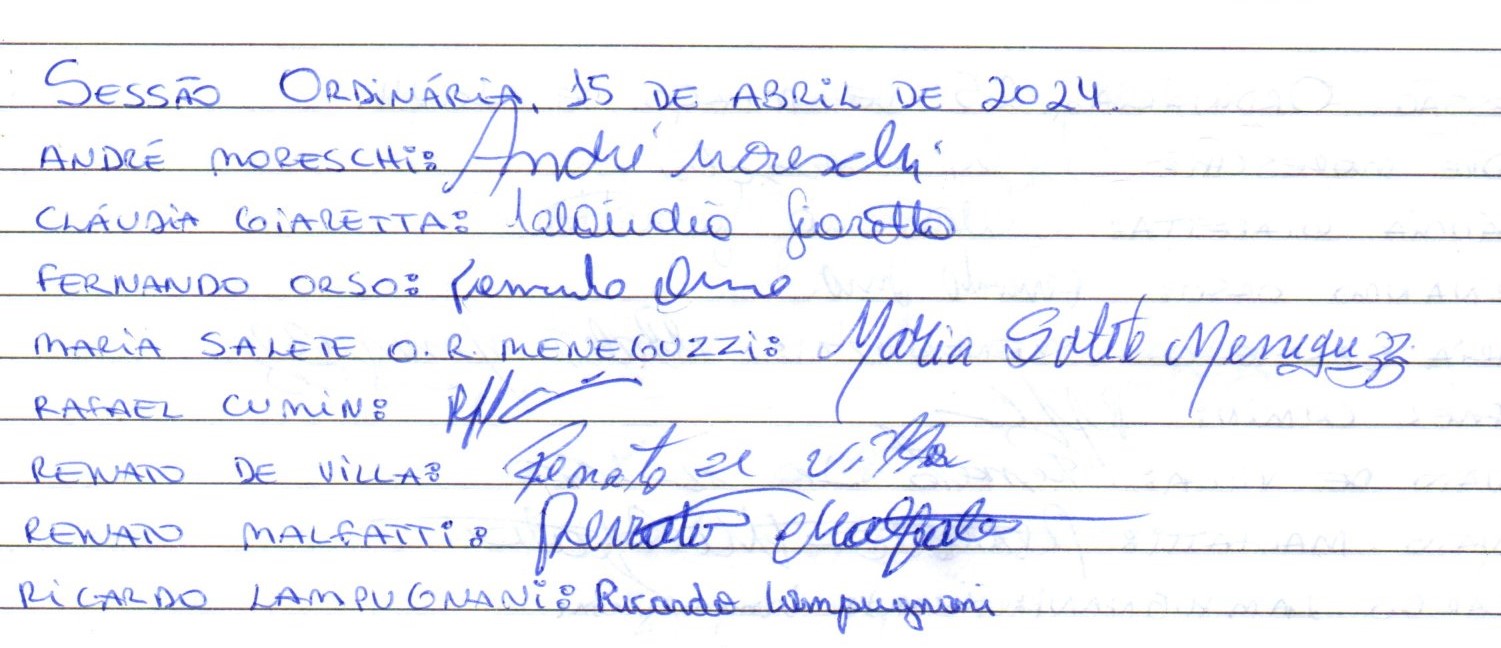 SESSÃO ORDINÁRIA, 15 DE ABRIL DE 2024.
ANDRÉ MORESCHI: André Moreschi
CLÁUDIA GIARETTA: Claúdia Giaretta
FERNANDO ORSO: Fernando Orso
MARIA SALETE O. R. MENEGUZZI: Maria Salete Meneguzzi
RAFAEL CUMIN:
RENATO DE VILLA: Renato de Villa
RENATO MALFATTI: Renato Malfatti
RICARDO LAMPUGNANI: Ricardo Lampugnani